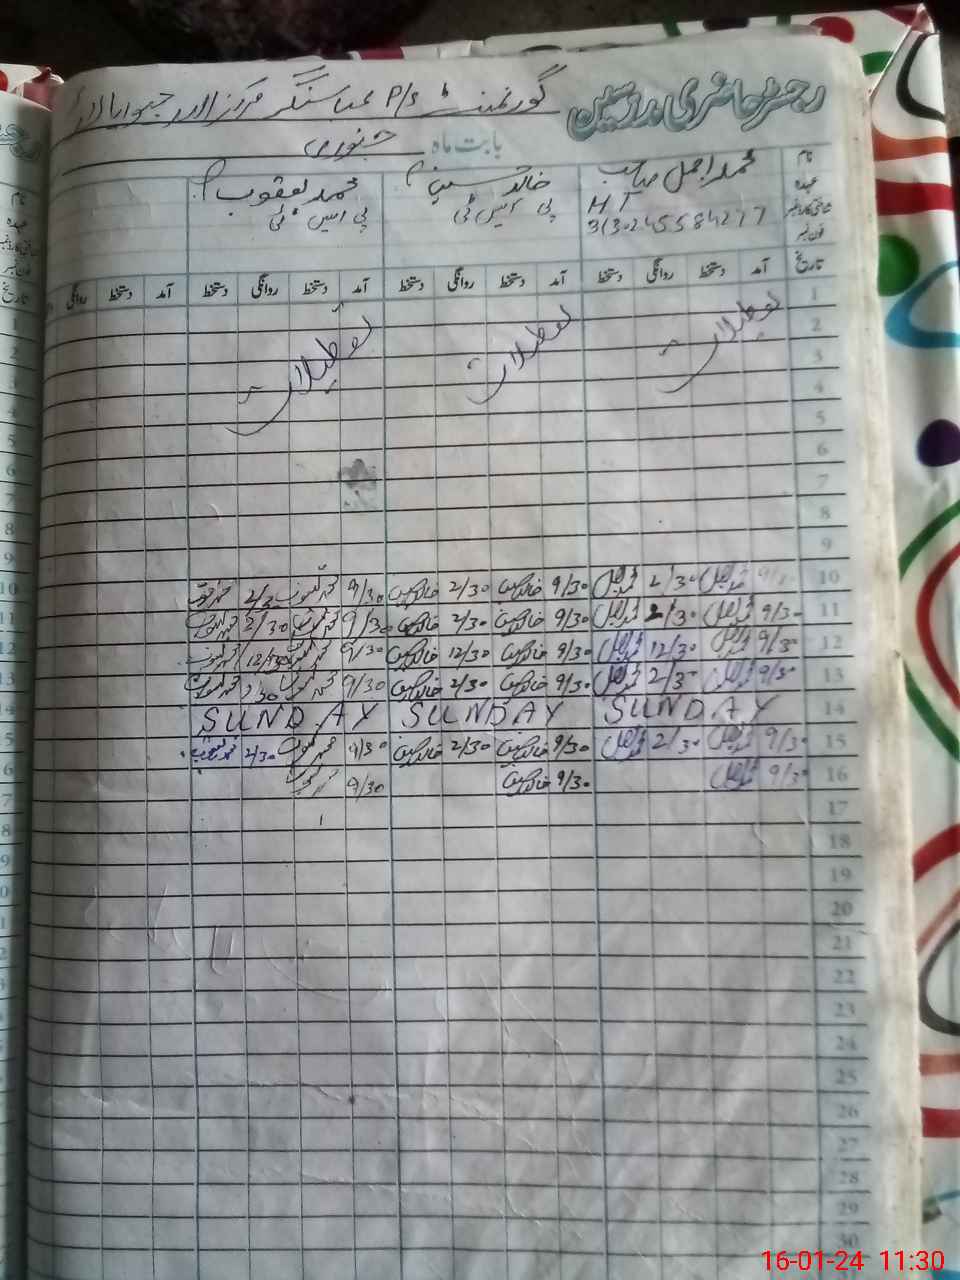 رجسٹر حاضری مدرسین
گورنمنٹ P/S عباسنگر مرکز
بابت ماہ جنوری
نام محمد اجمل صاحب خالد حسین محمد یعقوب
عہدہ HT پی ایس ٹی پی ایس ٹی
شناختی کارڈ نمبر 3130245584277
فون نمبر
تاریخ آمد دستخط روانگی دستخط آمد دستخط روانگی دستخط آمد دستخط روانگی دستخط آمد دستخط روانگی
1
2 تعطیلات تعطیلات تعطیلات
3
4
5
6
7
8
9
10 9/30 محمد اجمل 2/30 محمد اجمل 9/30 خالد حسین 2/30 خالد حسین 9/30 محمد یعقوب 2/30 محمد یعقوب
11 9/30 محمد اجمل 2/30 محمد اجمل 9/30 خالد حسین 2/30 خالد حسین 9/30 محمد یعقوب 2/30 محمد یعقوب
12 9/30 محمد اجمل 12/30 محمد اجمل 9/30 خالد حسین 12/30 خالد حسین 9/30 محمد یعقوب 12/30 محمد یعقوب
13 9/30 محمد اجمل 2/30 محمد اجمل 9/30 خالد حسین 2/30 خالد حسین 9/30 محمد یعقوب 2/30 محمد یعقوب
14 SUNDAY SUNDAY SUNDAY
15 9/30 محمد اجمل 2/30 محمد اجمل 9/30 خالد حسین 2/30 خالد حسین 9/30 محمد یعقوب 2/30 محمد یعقوب
16 9/30 محمد اجمل 9/30 خالد حسین 9/30 محمد یعقوب
17
18
19
20
21
22
23
24
25
26
27
28
29
30
16-01-24 11:30